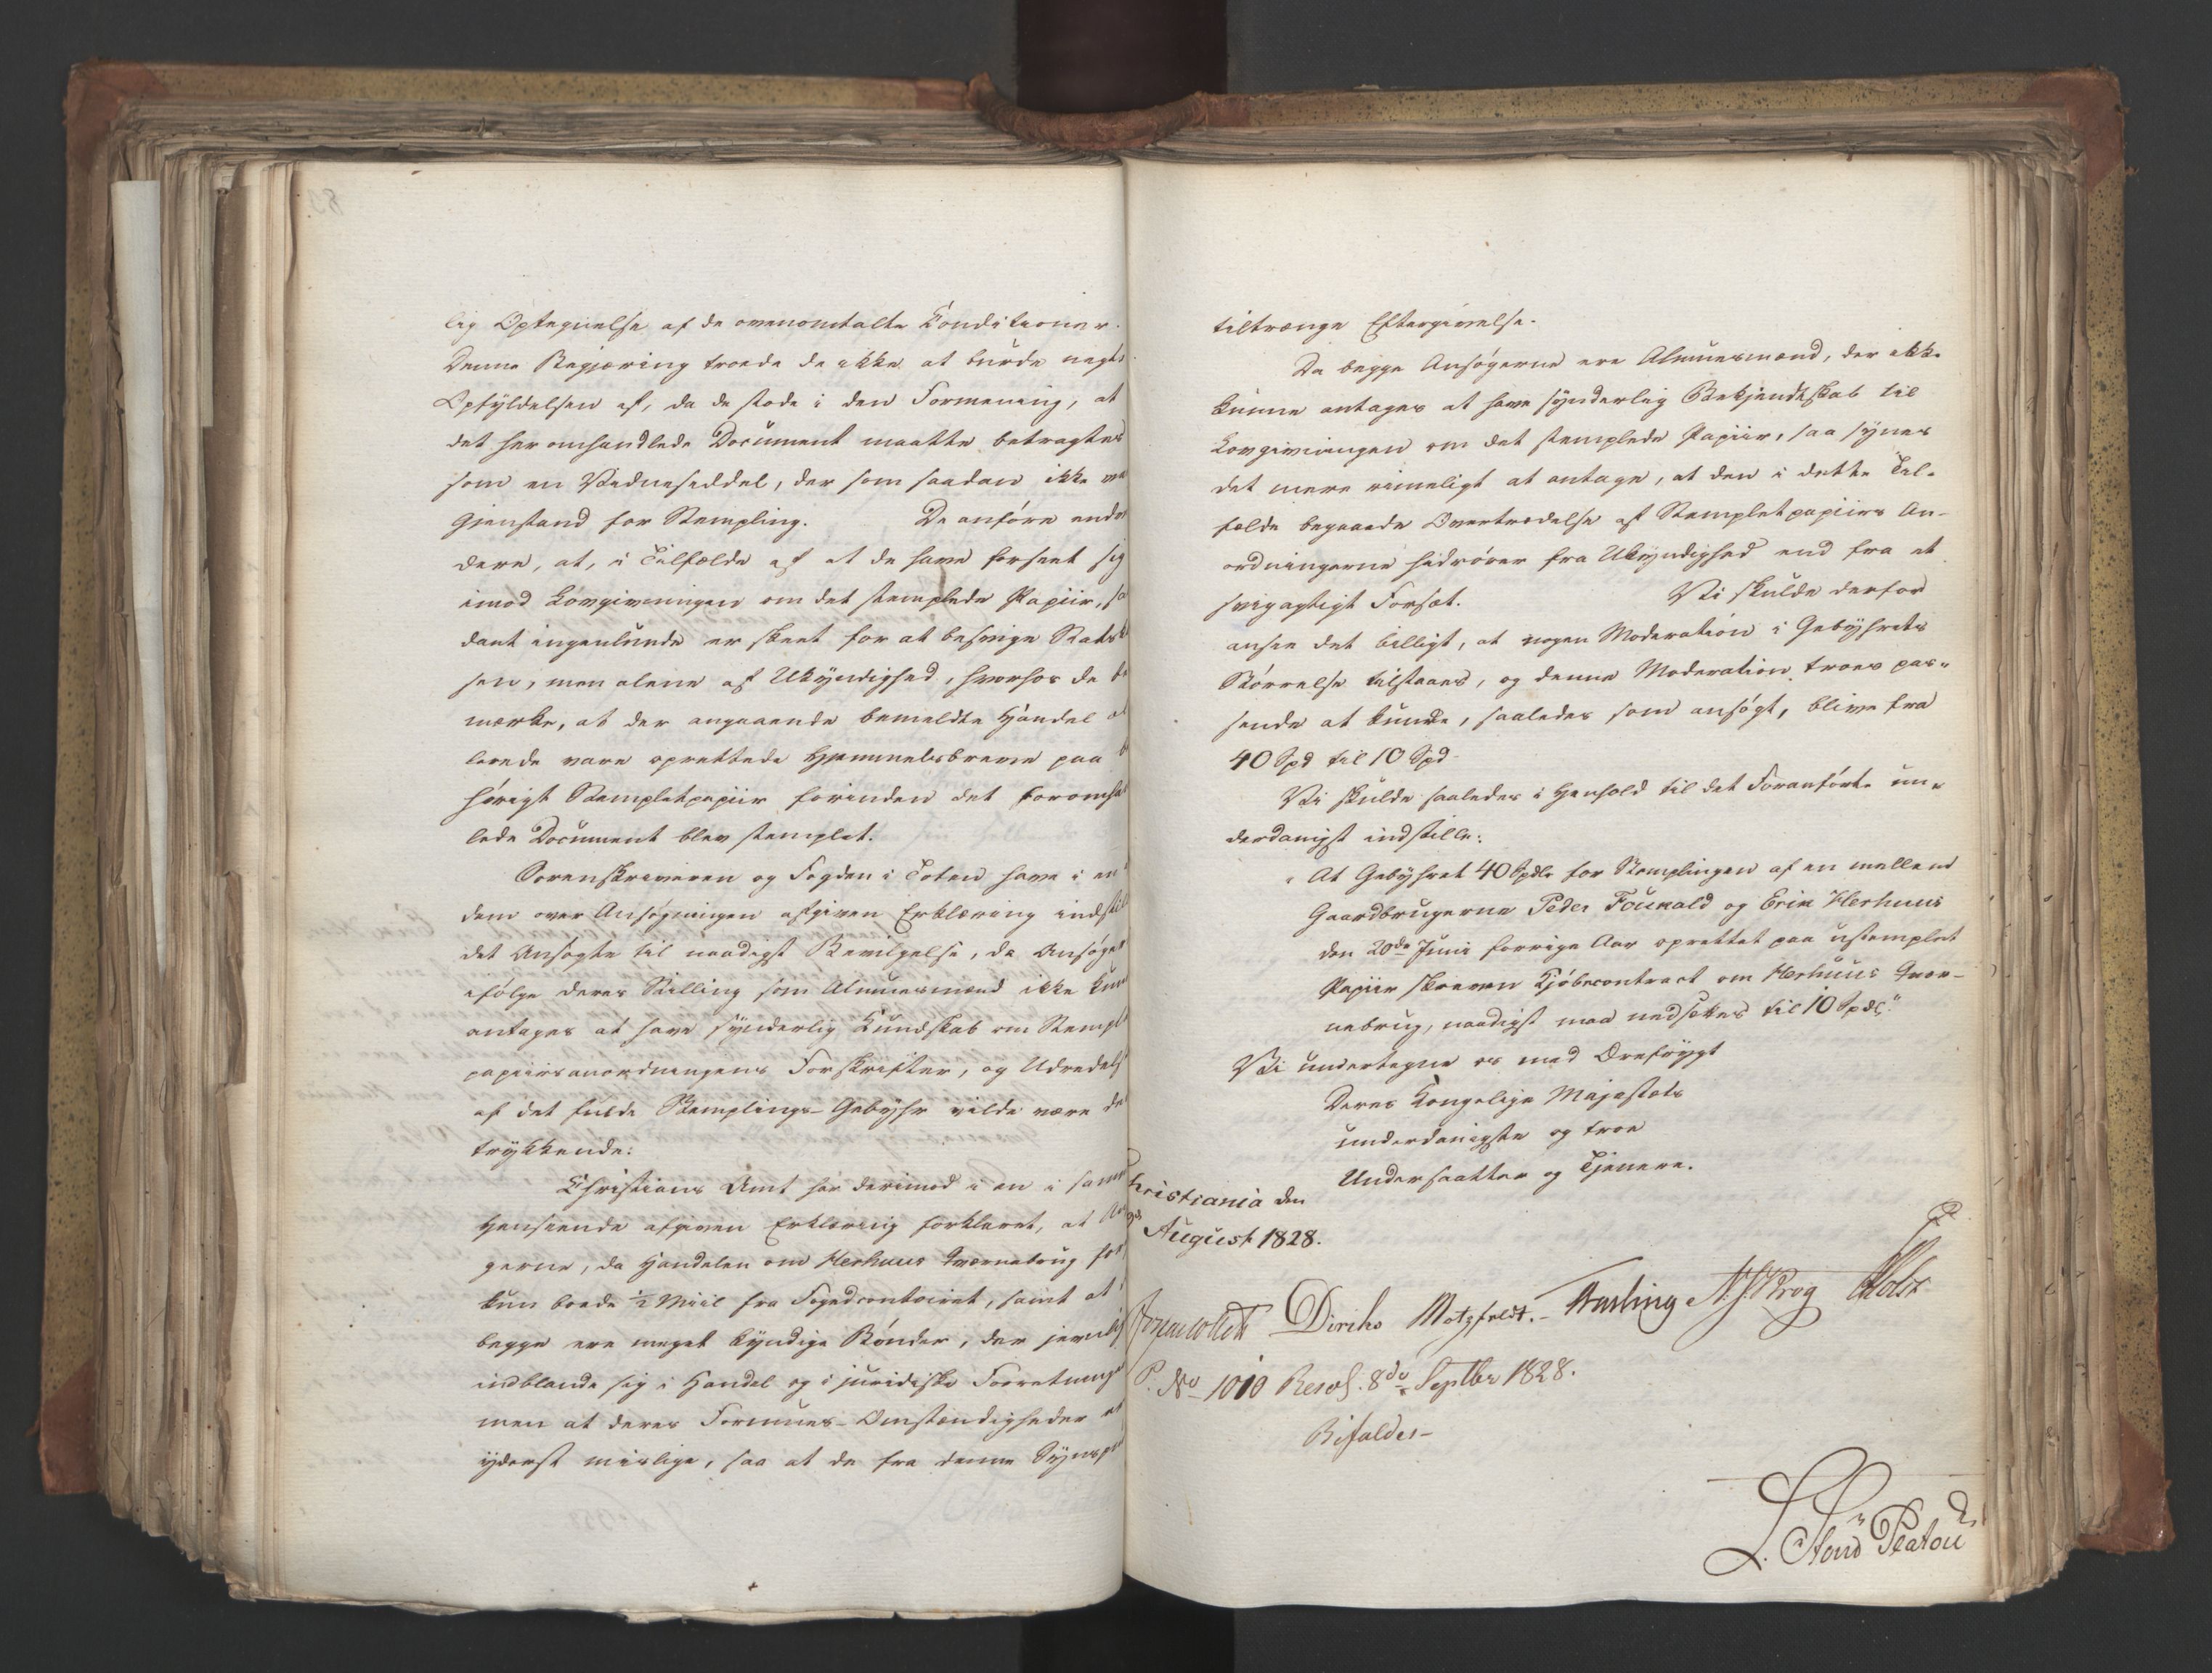 lig Optegnelse af de ovenomtalte Conditioner.
Denne Begjæring troede de ikke at burde negte
Opfyldelsen af, da de stode i den Formening, at
det her omhandlede Document maatte betragtes
som en Vidneseddel, der som saadan ikke var
Gjenstand for Stempling. De anføre endvi
dere, at, i Tilfælde af at de have forseet sig
imod Lovgivningen om det stemplede Papiir, saa
dant ingenlunde er skeet for at besvige Statskas
sen, men alene af Ukyndighed, hvorhos de be
mærke, at der angaaende bemeldte Handel al
lerede vare oprettede Hjemmelsbreve paa be
hørigt Stempletpapiir forinden det foromhand
lede Document blev stemplet.
Sorenskriveren og Fogden i Toten have i en
dem over Ansøgningen afgiven Erklæring indstillet
det Ansøgte til naadigst Bevilgelse, da Ansøgerne
ifølge deres Stilling som Almuesmænd ikke kunne
antages at have synderlig Kundskab om Stemplet
papiirsanordningens Forskrifter, og Udredelsen
af det fulde Stemplings-Gebyhr vilde være dem
trykkende:
Christians Amt har derimod i en i samme
Henseende afgiven Erklæring forklaret, at Ansø
gerne, da Handelen om Herhuus Qværnebrug
kun boede ½ Miil fra Fogedcontoiret, samt at
begge ere meget kyndige Bønder, der jevnlig
indblande sig i Handel og i juridiske Forretninger
men at deres Formues-Omstændigheder ere
yderst mislige, saa at de fra denne Synspunct
tiltrænge Eftergivelse.
Da begge Ansøgerne ere Almuesmænd, der ikke
kunne antages at have synderlig Bekjendtskab til
Lovgivningen om det stemplede Papiir, saa synes
det mere rimeligt at antage, at den i dette Til-
fælde begaaede Overtrædelse af Stempletpapiirs An-
ordningerne hidrører fra Ukyndighed end fra et
svigagtigt Forsæt. Vi skulde derfor
ansee det billigt, at nogen Moderation i Gebyhrets
Størrelse tilstaaes, og denne Moderation troes pas-
sende at kunne, saaledes som ansøgt, blive fra
40 Spd til 10 Spd.
Vi skulde saaledes i Henhold til det Foranførte un-
derdanigst indstille:
"At Gebyhret 40 Spdlr for Stemplingen af en mellem
Gaardbrugerne Peder Fouvald og Erik Herhuus
den 20de Juni forrige Aar oprettet paa ustemplet
Papiir skreven Kjøbecontract om Herhuus Qvær-
nebrug, naadigst maa nedsættes til 10 Spdlr."
Vi undertegne os med Ærefrygt
Deres Kongelige Majestæts
underdanigste og troe
Undersaatter og Tjenere.
Christiania den
August 1828.
Diriks Motzfeldt. Fasting Krog Holst
P. No 1010 Resol. 8de Septbr 1828.
Bifaldes-
L. Stoud Platou